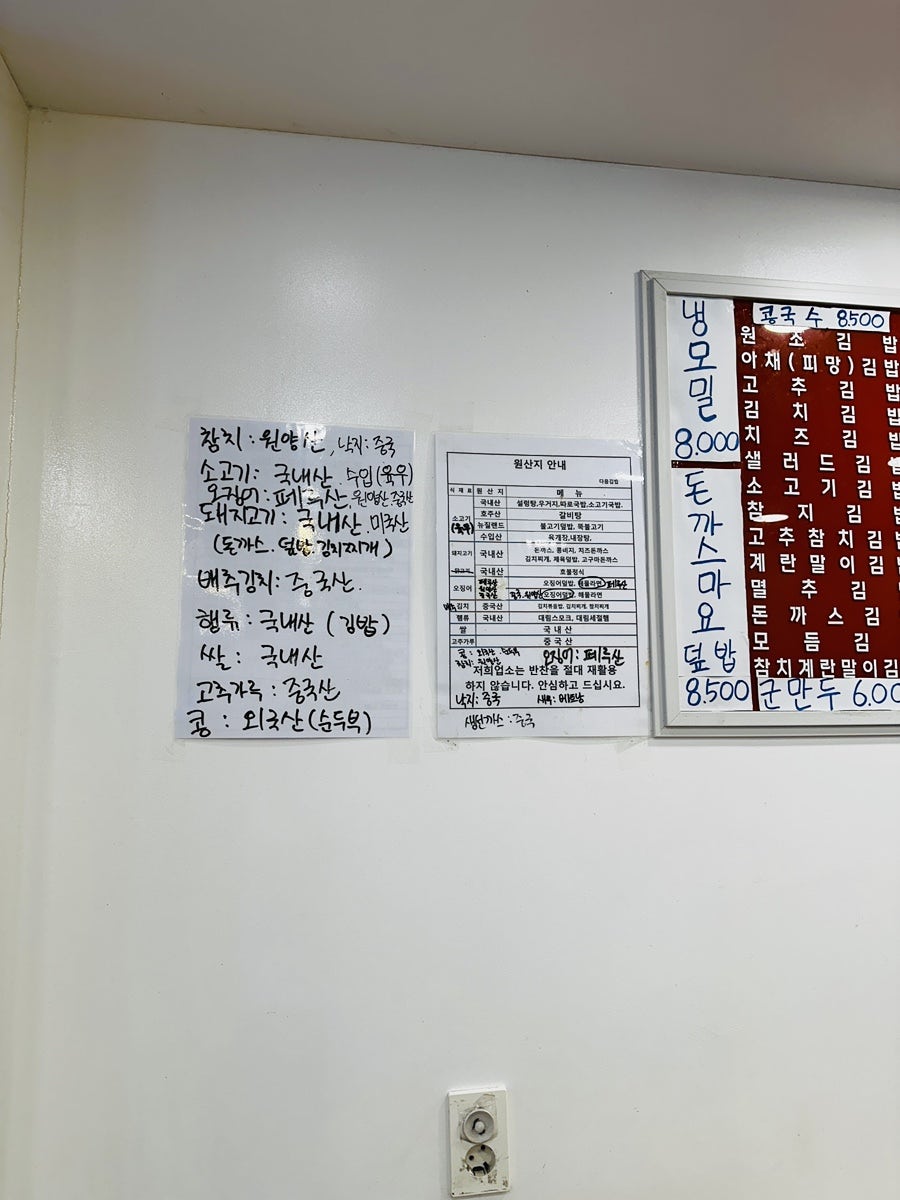 참치 : 원양산, 낙지 : 중국
소고기 : 국내산. 수입(육우)
오징어 : 페루산, 원양산, 중국산
돼지고기 : 국내산 미국산
(돈까스. 덮밥. 김치찌개)
배추김치 : 중국산.
햄류 : 국내산 (김밥)
쌀 : 국내산
고추가루 : 중국산
콩 : 외국산 (순두부)
원산지 안내
다움김밥
식재료 원산지 메뉴
소고기 (육우)
국내산 설렁탕,우거지,따로국밥,소고기국밥.
호주산 갈비탕
뉴질랜드 불고기덮밥, 뚝불고기
수입산 육개장,내장탕,
돼지고기 국내산 돈까스, 콩비지, 치즈돈까스
김치찌개, 제육덮밥, 고구마돈까스
국내산 호불정식
오징어 페루산 오징어덮밥, 해물라면 페루산
원양산
중국산 중국, 원양산 오징어덮밥, 해물라면
배추 김치 중국산 김치볶음밥, 김치찌개, 참치찌개
햄류 국내산 대림스모크, 대림세절햄
쌀 국내산
고추가루 중국산
콩 : 외국산 오징어 : 페루산
참치 : 원양산
저희업소는 반찬을 절대 재활용
하지 않습니다. 안심하고 드십시요.
낙지 : 중국 새우 : 베트남
생선까스 : 중국
냉모밀
8.000
돈까스마요덮밥
8.500
콩국수 8.500
원조김밥
야채(피망)김밥
고추김밥
김치김밥
치즈김밥
샐러드김
소고기김밥
참치김
고추참치김
계란말이김
멸추김
돈까스김
모듬김
참치계란말이김
군만두 6.00